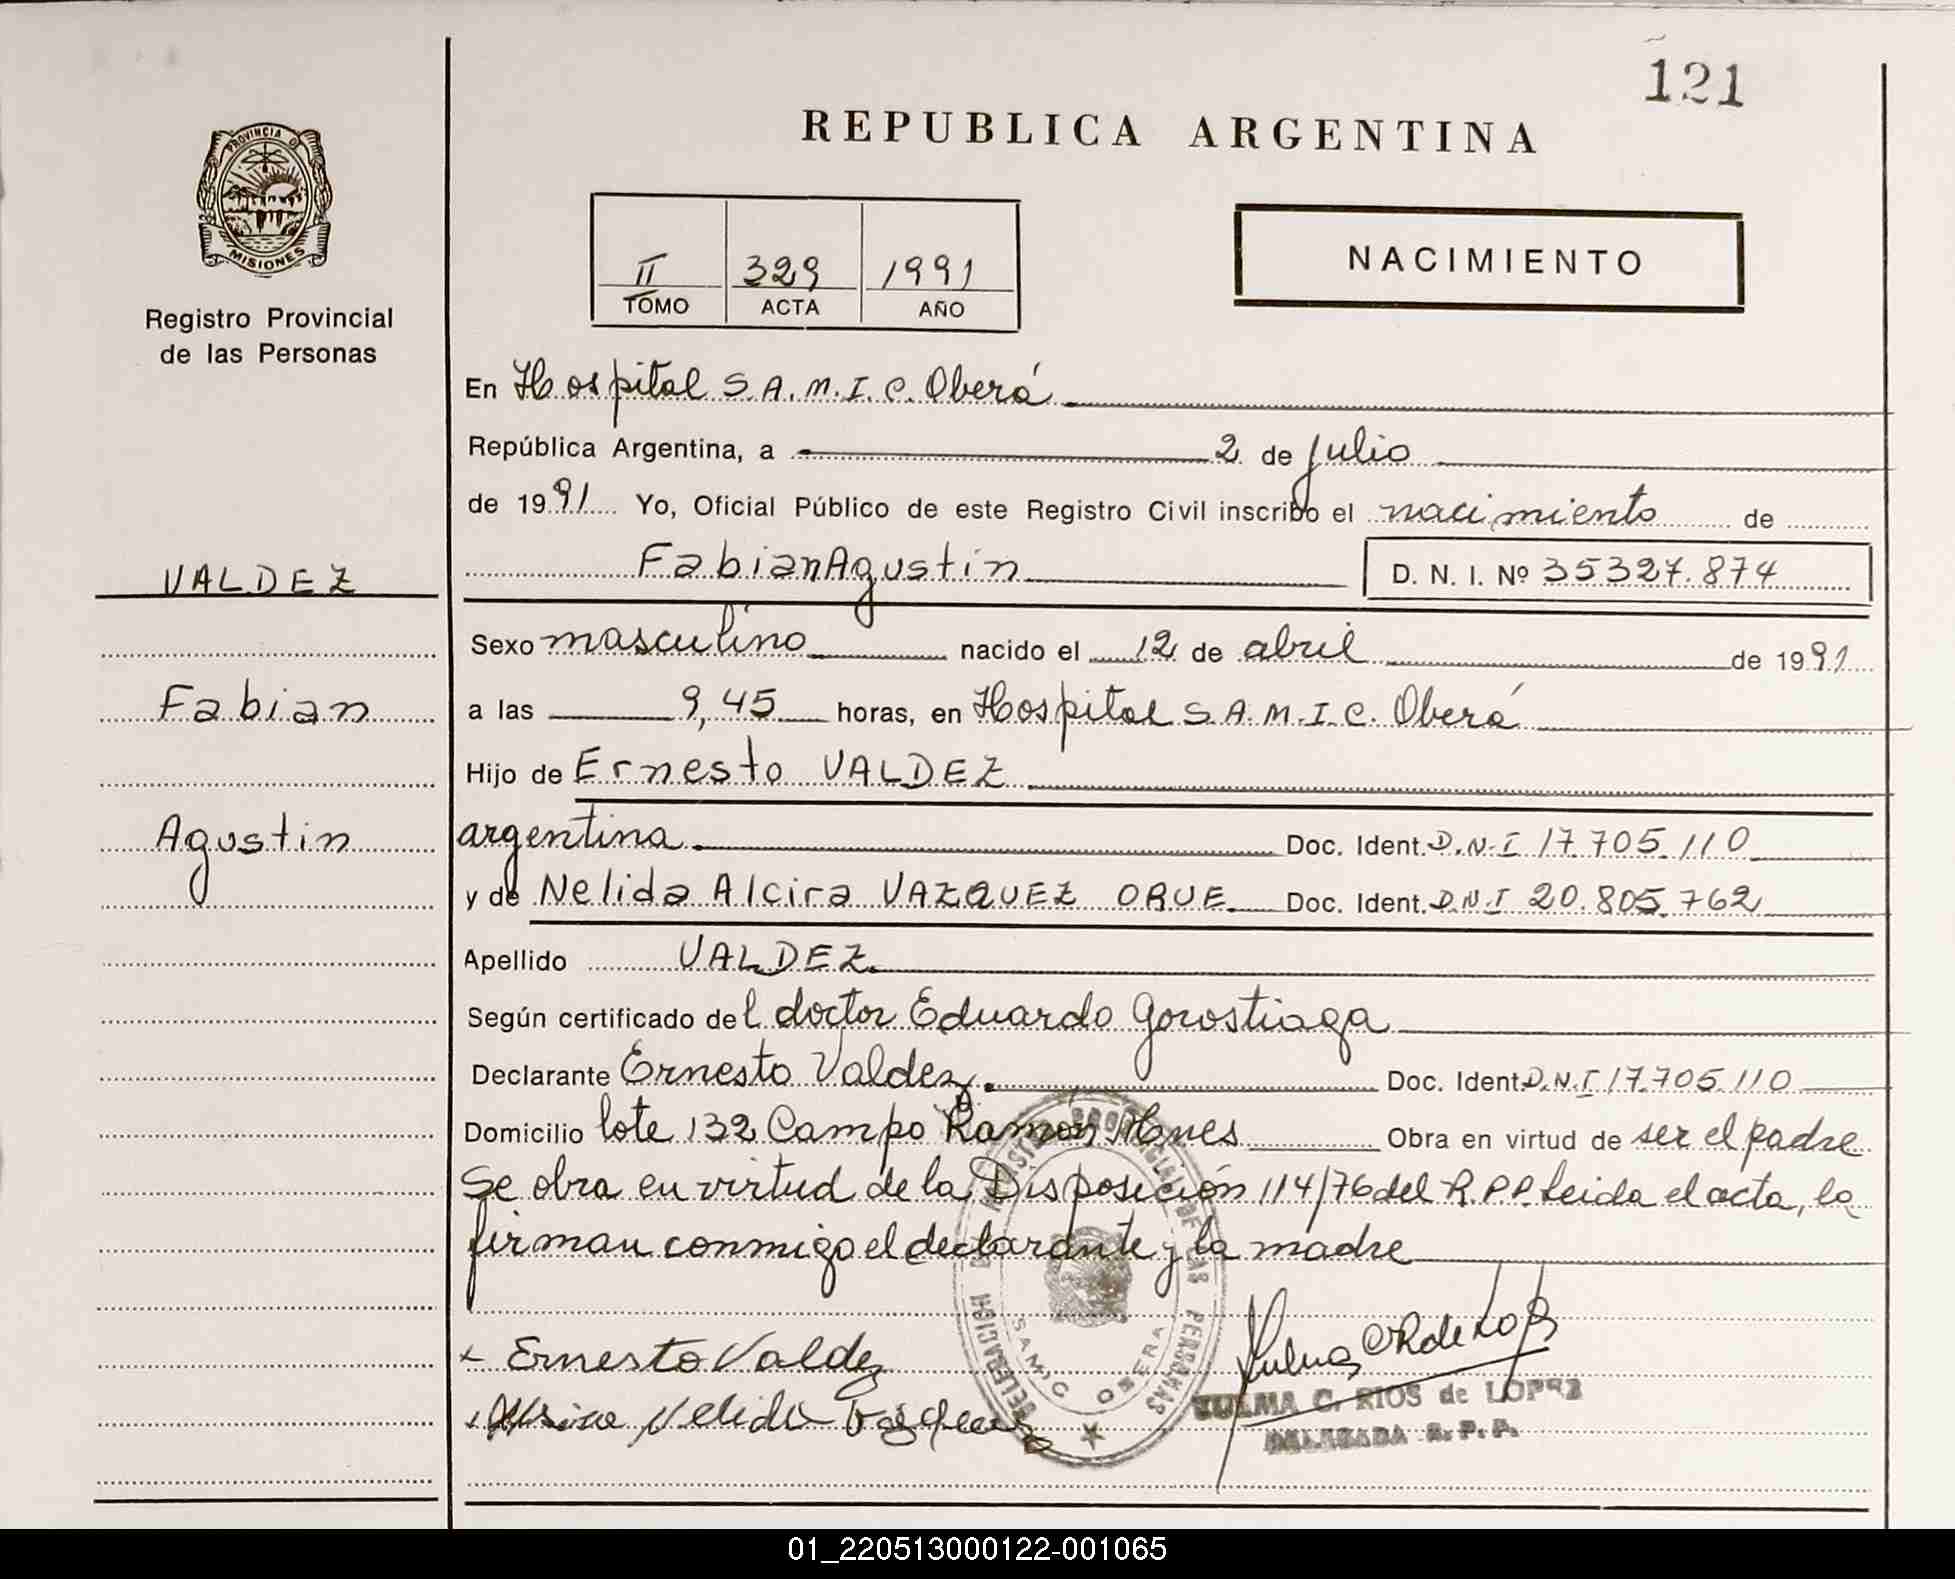 121
REPUBLICA ARGENTINA
PROVINCIA D
MISIONES
Registro Provincial
de las Personas
II 329 1991
TOMO ACTA AÑO
NACIMIENTO
En Hospital S.A.M.I.C. Oberá
República Argentina, a 2 de julio
de 1991 Yo, Oficial Público de este Registro Civil inscribo el nacimiento de
Fabian Agustin D. N. I. Nº 35327.874
VALDEZ
Fabian
Agustin
Sexo masculino nacido el 12 de abril de 1991
a las 9,45 horas, en Hospital S.A.M.I.C. Oberá
Hijo de Ernesto VALDEZ
argentina Doc. Ident. D.N.I 17.705.110
y de Nelida Alcira VAZQUEZ ORUE Doc. Ident. D.N.I 20.805.762
Apellido VALDEZ
Según certificado del doctor Eduardo Gorostiaga
Declarante Ernesto Valdez Doc. Ident D.N.I 17.705.110
Domicilio lote 132 Campo Ramon Obra en virtud de ser el padre
Se obra en virtud de la Disposición 114/76 del R.P.P. Leida el acta, la
firman conmigo el declarante y la madre
Ernesto Valdez
Nelida
SAMIC OBERA
PERSONAS
ZULMA C. RIOS de LOPEZ
DELEGADA R. P. P.
01_220513000122-001065